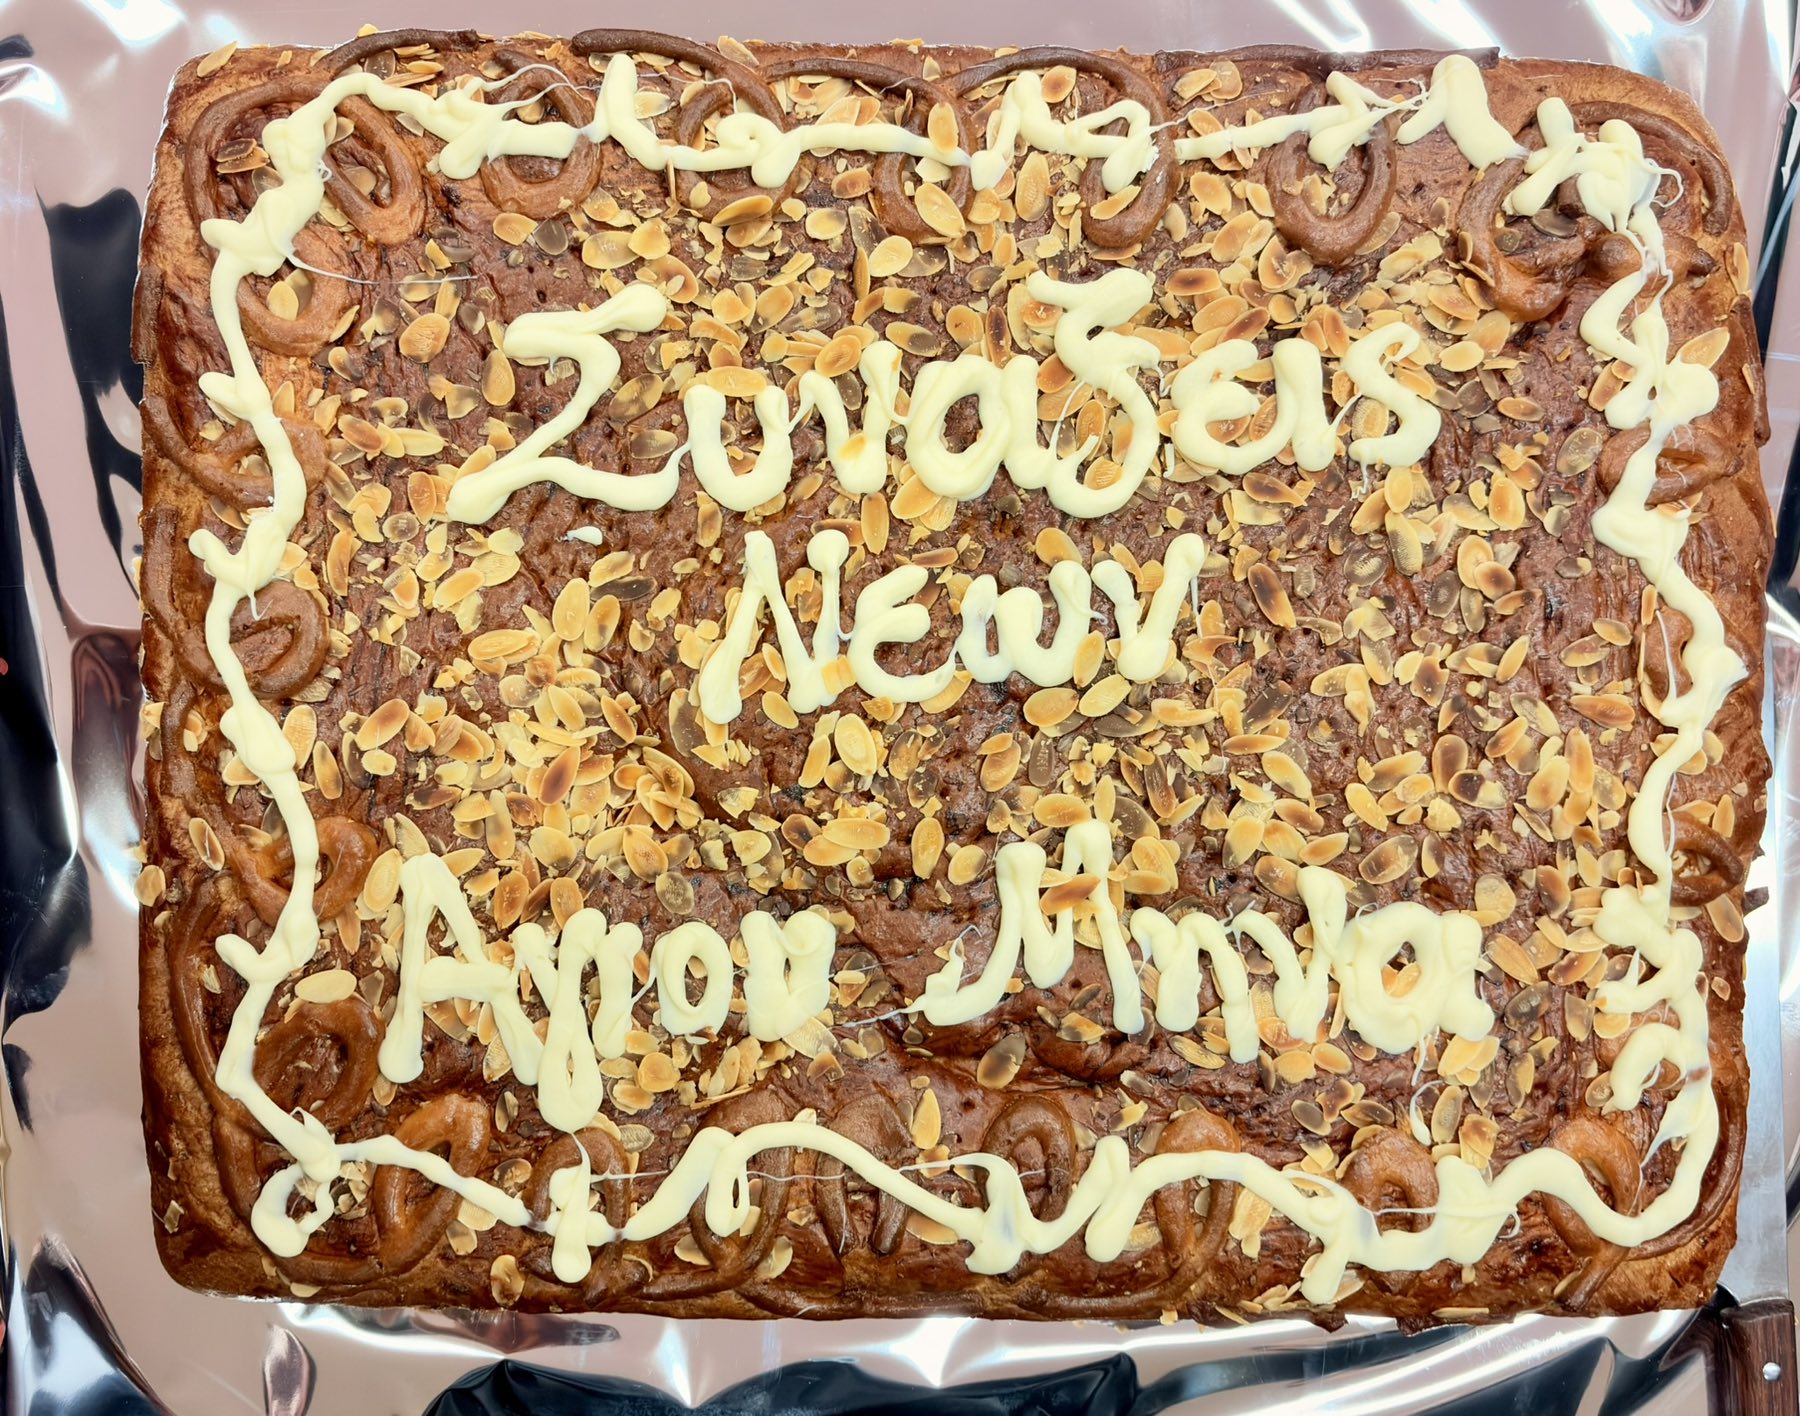 Συναξεις
Νεων
Αγιου Μηνα